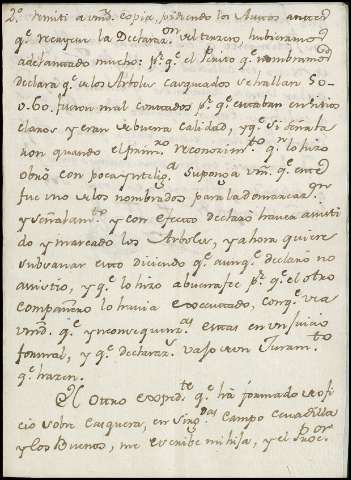 2.º remiti a vmd. copia, pidiendo los Autos antes
q.e recayer la Declaraz.on del tuzero, hubieramos
adelantado mucho: p.r q.e el Perito q.e nombramos
declara q.e de los Arboles casqueados se hallan 50-
o.60. fueron mal contados p.r q.e estaban en sitios
claros y eran de buena calidad, y q.e si señala
ron quando el prim.ro reconozim.to q.e lo hizo
obró con poca yntelig.a Supongo a vm. q.e este
fue uno de los nombrados para la demarcaz.on
y señalam.to y con efecto declaró haver asisti
do y marcado los Arboles, y ahora quiere
subsanar esto diciendo q.e aunq.e declaró no
asistio, y q.e lo hizo a buena fee p.r q.e el otro
compañero lo havia executado, conq.e vea
vmd. q.e ynconsequenz.as estas en un juicio
formal, y q.e declaraz.s vajo de un Juram.to
q.e hazen.
El ottro exped.te q.e há formado de ofi
cio sobre Casquera, en sing.r Campo Cevadilla
y los Buenos, me escribe mi hija, y el Proc.or